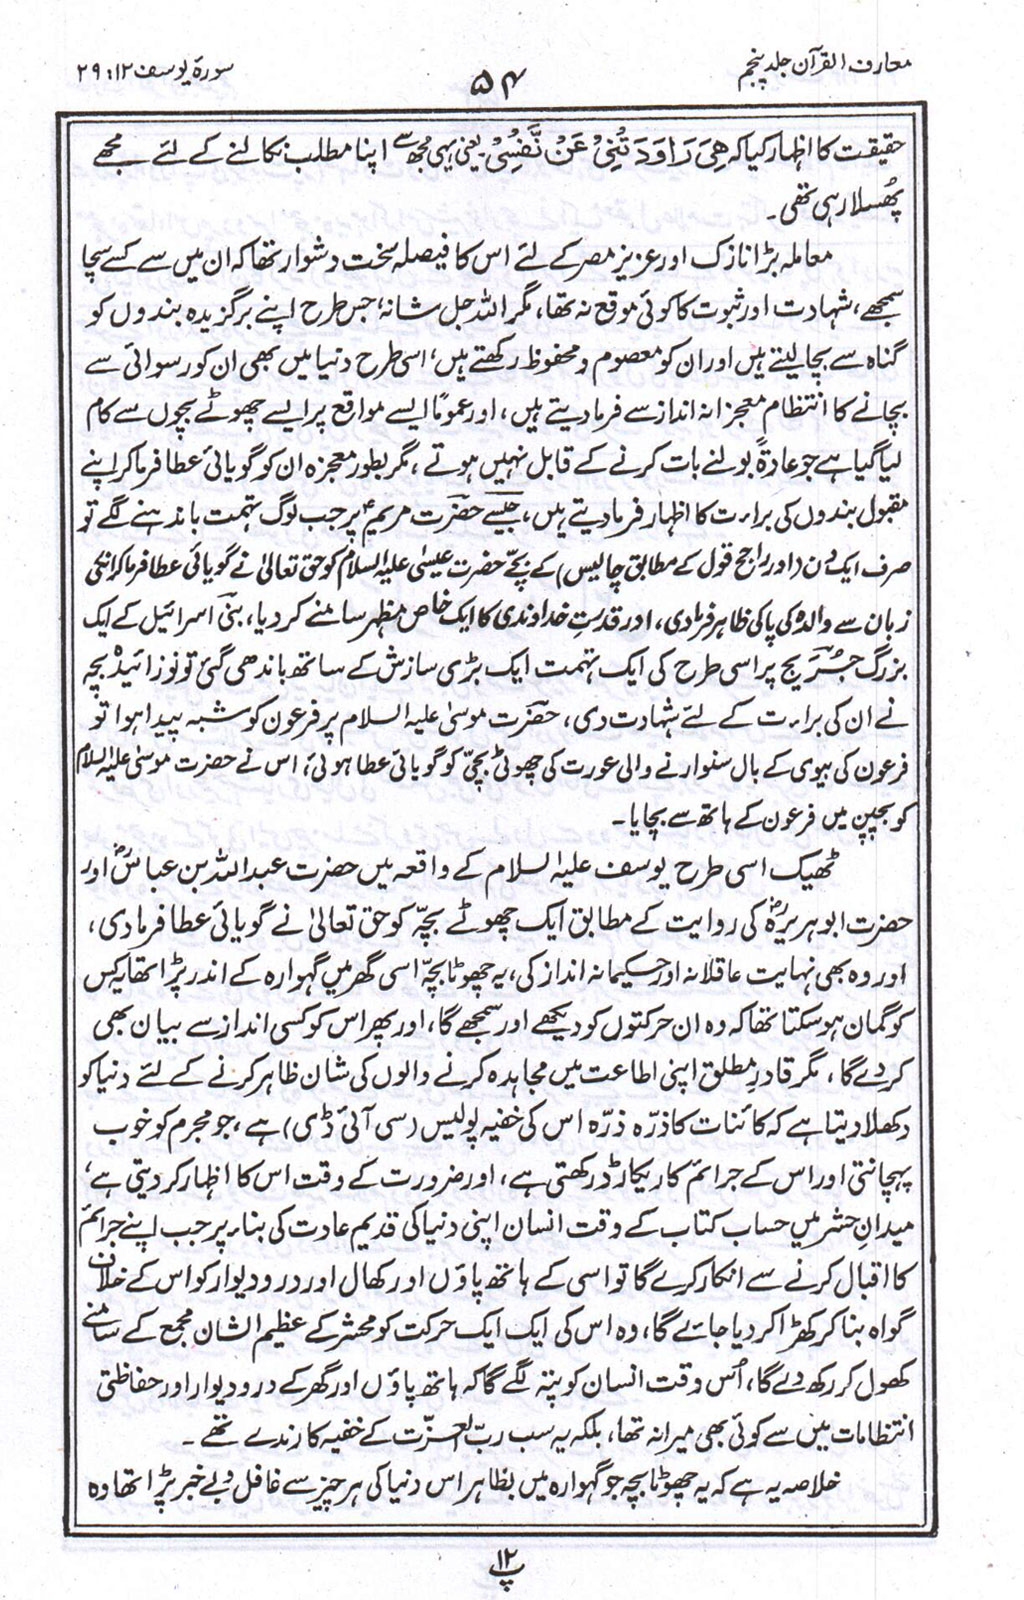 معارف القرآن جلد پنجم
۵۴
سورۂ یوسف ۱۲: ۲۹
حقیقت کا اظہار کیا کہ هِیَ رَاوَدَتْنِیْ عَنْ نَّفْسِیْ یعنی یہی مجھ سے اپنا مطلب نکالنے کے لئے مجھے
پُھسلا رہی تھی۔
معاملہ بڑا نازک اور عزیز مصر کے لئے اس کا فیصلہ سخت دشوار تھا کہ ان میں سے کسے سچا
سمجھے، شہادت اور ثبوت کا کوئی موقع نہ تھا، مگر اللہ جل شانہ، جس طرح اپنے برگزیدہ بندوں کو
گناہ سے بچا لیتے ہیں اور ان کو معصوم و محفوظ رکھتے ہیں، اسی طرح دنیا میں بھی ان کو رسوائی سے
بچانے کا انتظام معجزانہ انداز سے فرما دیتے ہیں، اور عموماً ایسے مواقع پر ایسے چھوٹے بچوں سے کام
لیا گیا ہے جو عادۃً بولنے بات کرنے کے قابل نہیں ہوتے، مگر بطور معجزہ ان کو گویائی عطا فرما کر اپنے
مقبول بندوں کی براءت کا اظہار فرما دیتے ہیں، جیسے حضرت مریمؑ پر جب لوگ تہمت باندھنے لگے تو
صرف ایک دن (اور راجح قول کے مطابق چالیس) کے بچے حضرت عیسیٰ علیہ السلام کو حق تعالیٰ نے گویائی عطا فرما کر انکی
زبان سے والدہ کی پاکی ظاہر فرما دی، اور قدرتِ خداوندی کا ایک خاص مظہر سامنے کر دیا، بنی اسرائیل کے ایک
بزرگ جُریج پر اسی طرح کی ایک تہمت ایک بڑی سازش کے ساتھ باندھی گئی تو نوزائیدہ بچہ
نے ان کی براءت کے لئے شہادت دی، حضرت موسیٰ علیہ السلام پر فرعون کو شبہ پیدا ہوا تو
فرعون کی بیوی کے بال سنوارنے والی عورت کی چھوٹی بچی کو گویائی عطا ہوئی، اس نے حضرت موسیٰ علیہ السلام
کو بچپن میں فرعون کے ہاتھ سے بچایا۔
ٹھیک اسی طرح یوسف علیہ السلام کے واقعہ میں حضرت عبداللہ بن عباسؓ اور
حضرت ابو ہریرہؓ کی روایت کے مطابق ایک چھوٹے بچہ کو حق تعالیٰ نے گویائی عطا فرما دی،
اور وہ بھی نہایت عاقلانہ اور حکیمانہ انداز کی، یہ چھوٹا بچہ اسی گھر میں گہوارہ کے اندر پڑا تھا یہ کس
کو گمان ہو سکتا تھا کہ وہ ان حرکتوں کو دیکھے اور سمجھے گا، اور پھر اس کو کسی انداز سے بیان بھی
کر دے گا، مگر قادرِ مطلق اپنی اطاعت میں مجاہدہ کرنے والوں کی شان ظاہر کرنے کے لئے دنیا کو
دکھلا دیتا ہے کہ کائنات کا ذرّہ ذرّہ اس کی خفیہ پولیس (سی آئی ڈی) ہے، جو مجرم کو خوب
پہچانتی اور اس کے جرائم کا ریکارڈ رکھتی ہے، اور ضرورت کے وقت اس کا اظہار کر دیتی ہے،
میدانِ حشر میں حساب کتاب کے وقت انسان اپنی دنیا کی قدیم عادت کی بناء پر جب اپنے جرائم
کا اقبال کرنے سے انکار کرے گا تو اسی کے ہاتھ پاؤں اور کھال اور در و دیوار کو اس کے خلاف
گواہ بنا کر کھڑا کر دیا جائے گا، وہ اس کی ایک ایک حرکت کو محشر کے عظیم الشان مجمع کے سامنے
کھول کر رکھ دے گا، اُس وقت انسان کو پتہ لگے گا کہ ہاتھ پاؤں اور گھر کے در و دیوار اور حفاظتی
انتظامات میں سے کوئی بھی میرا نہ تھا، بلکہ یہ سب ربّ العزّت کے خفیہ کارندے تھے۔
خلاصہ یہ ہے کہ یہ چھوٹا بچہ جو گہوارہ میں بظاہر اس دنیا کی ہر چیز سے غافل و بے خبر پڑا تھا وہ
پ ۱۲